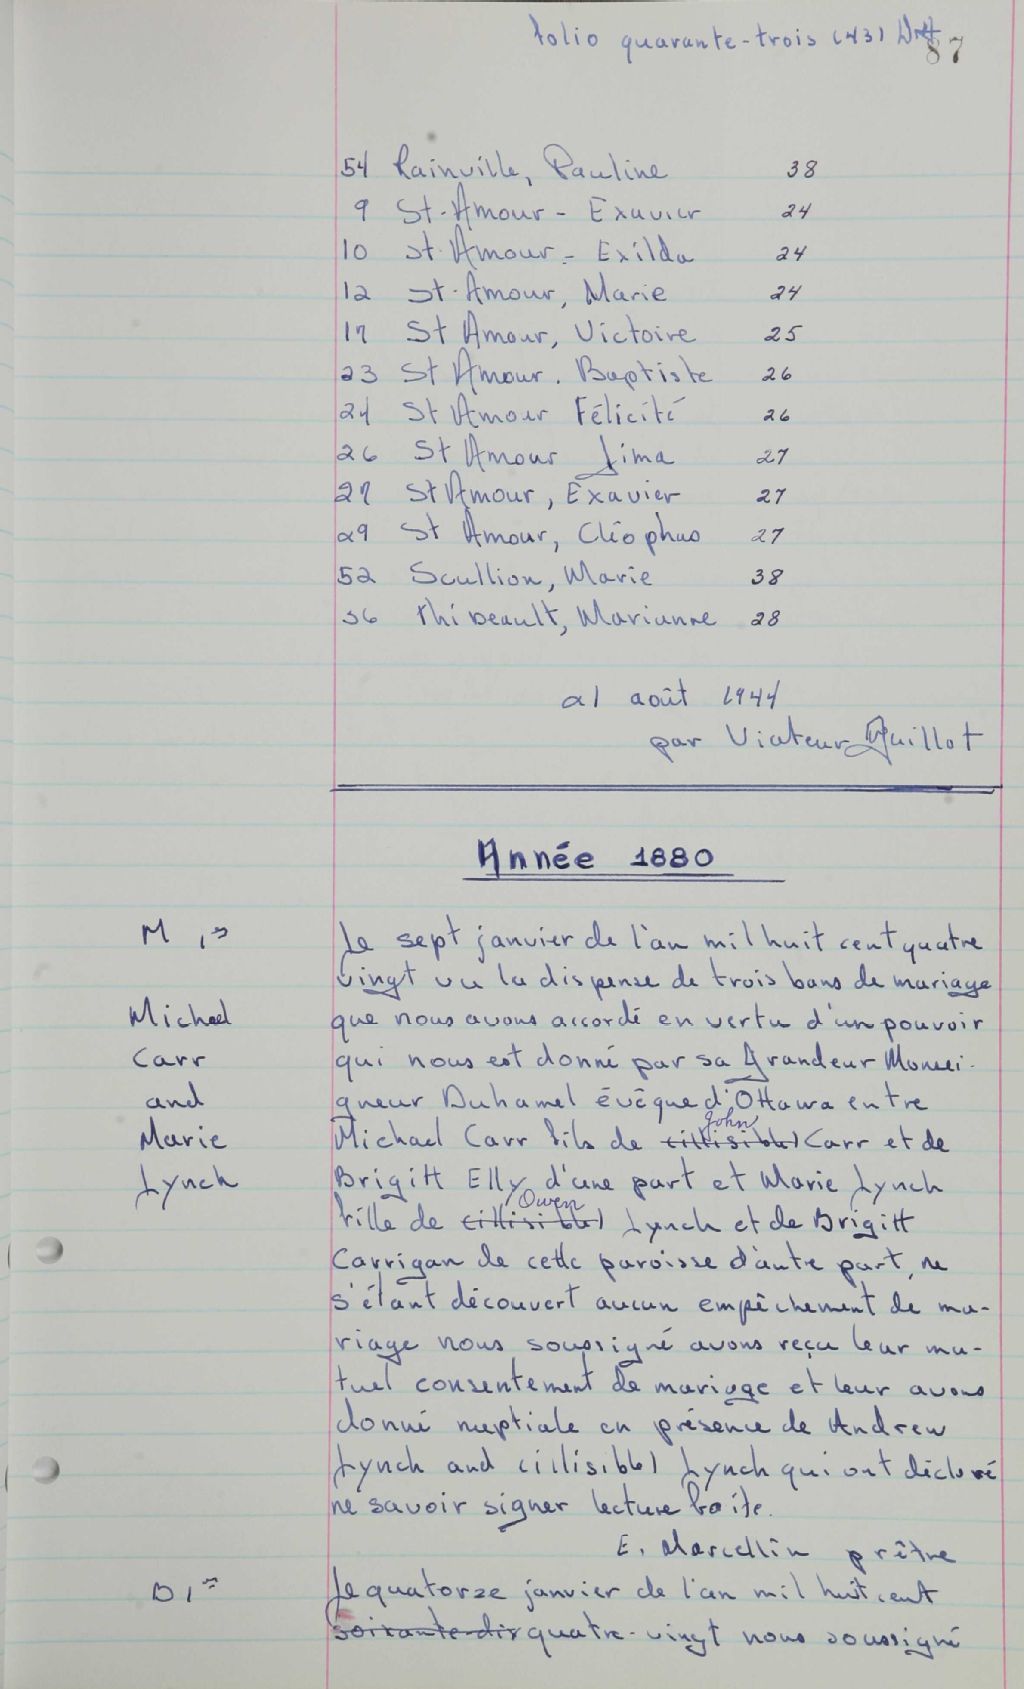 folio quarante-trois (43)
87
54 Rainville, Pauline 38
9 St-Amour - Exavier 24
10 St-Amour - Exilda 24
12 St-Amour, Marie 24
17 St Amour, Victoire 25
23 St Amour. Baptiste 26
24 St Amour Félicité 26
26 St Amour Lima 27
27 St Amour, Exavier 27
29 St Amour, Cléophas 27
52 Scullion, Marie 38
36 Thibeault, Marianne 28
21 août 1944
par Viateur Guillot
Année 1880
M 1
Michael
Carr
and
Marie
Lynch
Le sept janvier de l'an mil huit cent quatre
vingt vu la dispense de trois bans de mariage
que nous avons accordé en vertu d'un pouvoir
qui nous est donné par sa Grandeur Monsei-
gneur Duhamel évêque d'Ottawa entre
Michael Carr fils de (illisible) John Carr et de
Brigitt Elly d'une part et Marie Lynch
fille de (illisible) Owen Lynch et de Brigitt
Carrigan de cette paroisse d'autre part, ne
s'étant découvert aucun empêchement de ma-
riage nous soussigné avons reçu leur mu-
tuel consentement de mariage et leur avons
donné nuptiale en présence de Andrew
Lynch and (illisible) Lynch qui ont déclaré
ne savoir signer lecture faite.
E. Marcellin prêtre
D 1
Le quatorze janvier de l'an mil huit cent
soixante-dix quatre-vingt nous soussigné